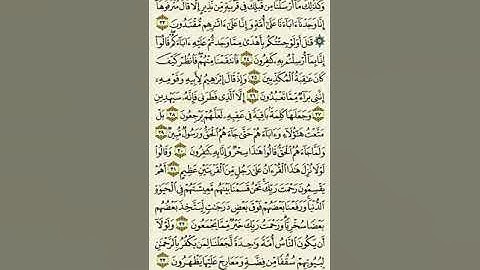 وَكَذَٰلِكَ مَآ أَرْسَلْنَا مِن قَبْلِكَ فِى قَرْيَةٍ مِّن نَّذِيرٍ إِلَّا قَالَ مُتْرَفُوهَآ
إِنَّا وَجَدْنَآ ءَابَآءَنَا عَلَىٰٓ أُمَّةٍ وَإِنَّا عَلَىٰٓ ءَاثَٰرِهِم مُّقْتَدُونَ ٢٣
۞ قَٰلَ أَوَلَوْ جِئْتُكُم بِأَهْدَىٰ مِمَّا وَجَدتُّمْ عَلَيْهِ ءَابَآءَكُمْ قَالُوٓا۟
إِنَّا بِمَآ أُرْسِلْتُم بِهِۦ كَٰفِرُونَ ٢٤ فَٱنتَقَمْنَا مِنْهُمْ فَٱنظُرْ كَيْفَ
كَانَ عَٰقِبَةُ ٱلْمُكَذِّبِينَ ٢٥ وَإِذْ قَالَ إِبْرَٰهِيمُ لِأَبِيهِ وَقَوْمِهِۦٓ
إِنَّنِى بَرَآءٌ مِّمَّا تَعْبُدُونَ ٢٦ إِلَّا ٱلَّذِى فَطَرَنِى فَإِنَّهُۥ سَيَهْدِينِ
٢٧ وَجَعَلَهَا كَلِمَةًۢ بَاقِيَةً فِى عَقِبِهِۦ لَعَلَّهُمْ يَرْجِعُونَ ٢٨ بَلْ
مَتَّعْتُ هَٰٓؤُلَآءِ وَءَابَآءَهُمْ حَتَّىٰ جَآءَهُمُ ٱلْحَقُّ وَرَسُولٌ مُّبِينٌ ٢٩
وَلَمَّا جَآءَهُمُ ٱلْحَقُّ قَالُوا۟ هَٰذَا سِحْرٌ وَإِنَّا بِهِۦ كَٰفِرُونَ ٣٠ وَقَالُوا۟
لَوْلَا نُزِّلَ هَٰذَا ٱلْقُرْءَانُ عَلَىٰ رَجُلٍ مِّنَ ٱلْقَرْيَتَيْنِ عَظِيمٍ ٣١ أَهُمْ
يَقْسِمُونَ رَحْمَتَ رَبِّكَ نَحْنُ قَسَمْنَا بَيْنَهُم مَّعِيشَتَهُمْ فِى ٱلْحَيَوٰةِ
ٱلدُّنْيَا وَرَفَعْنَا بَعْضَهُمْ فَوْقَ بَعْضٍ دَرَجَٰتٍ لِّيَتَّخِذَ بَعْضُهُم
بَعْضًا سُخْرِيًّا وَرَحْمَتُ رَبِّكَ خَيْرٌ مِّمَّا يَجْمَعُونَ ٣٢ وَلَوْلَآ
أَن يَكُونَ ٱلنَّاسُ أُمَّةً وَٰحِدَةً لَّجَعَلْنَا لِمَن يَكْفُرُ بِٱلرَّحْمَٰنِ
لِبُيُوتِهِمْ سُقُفًا مِّن فِضَّةٍ وَمَعَارِجَ عَلَيْهَا يَظْهَرُونَ ٣٣